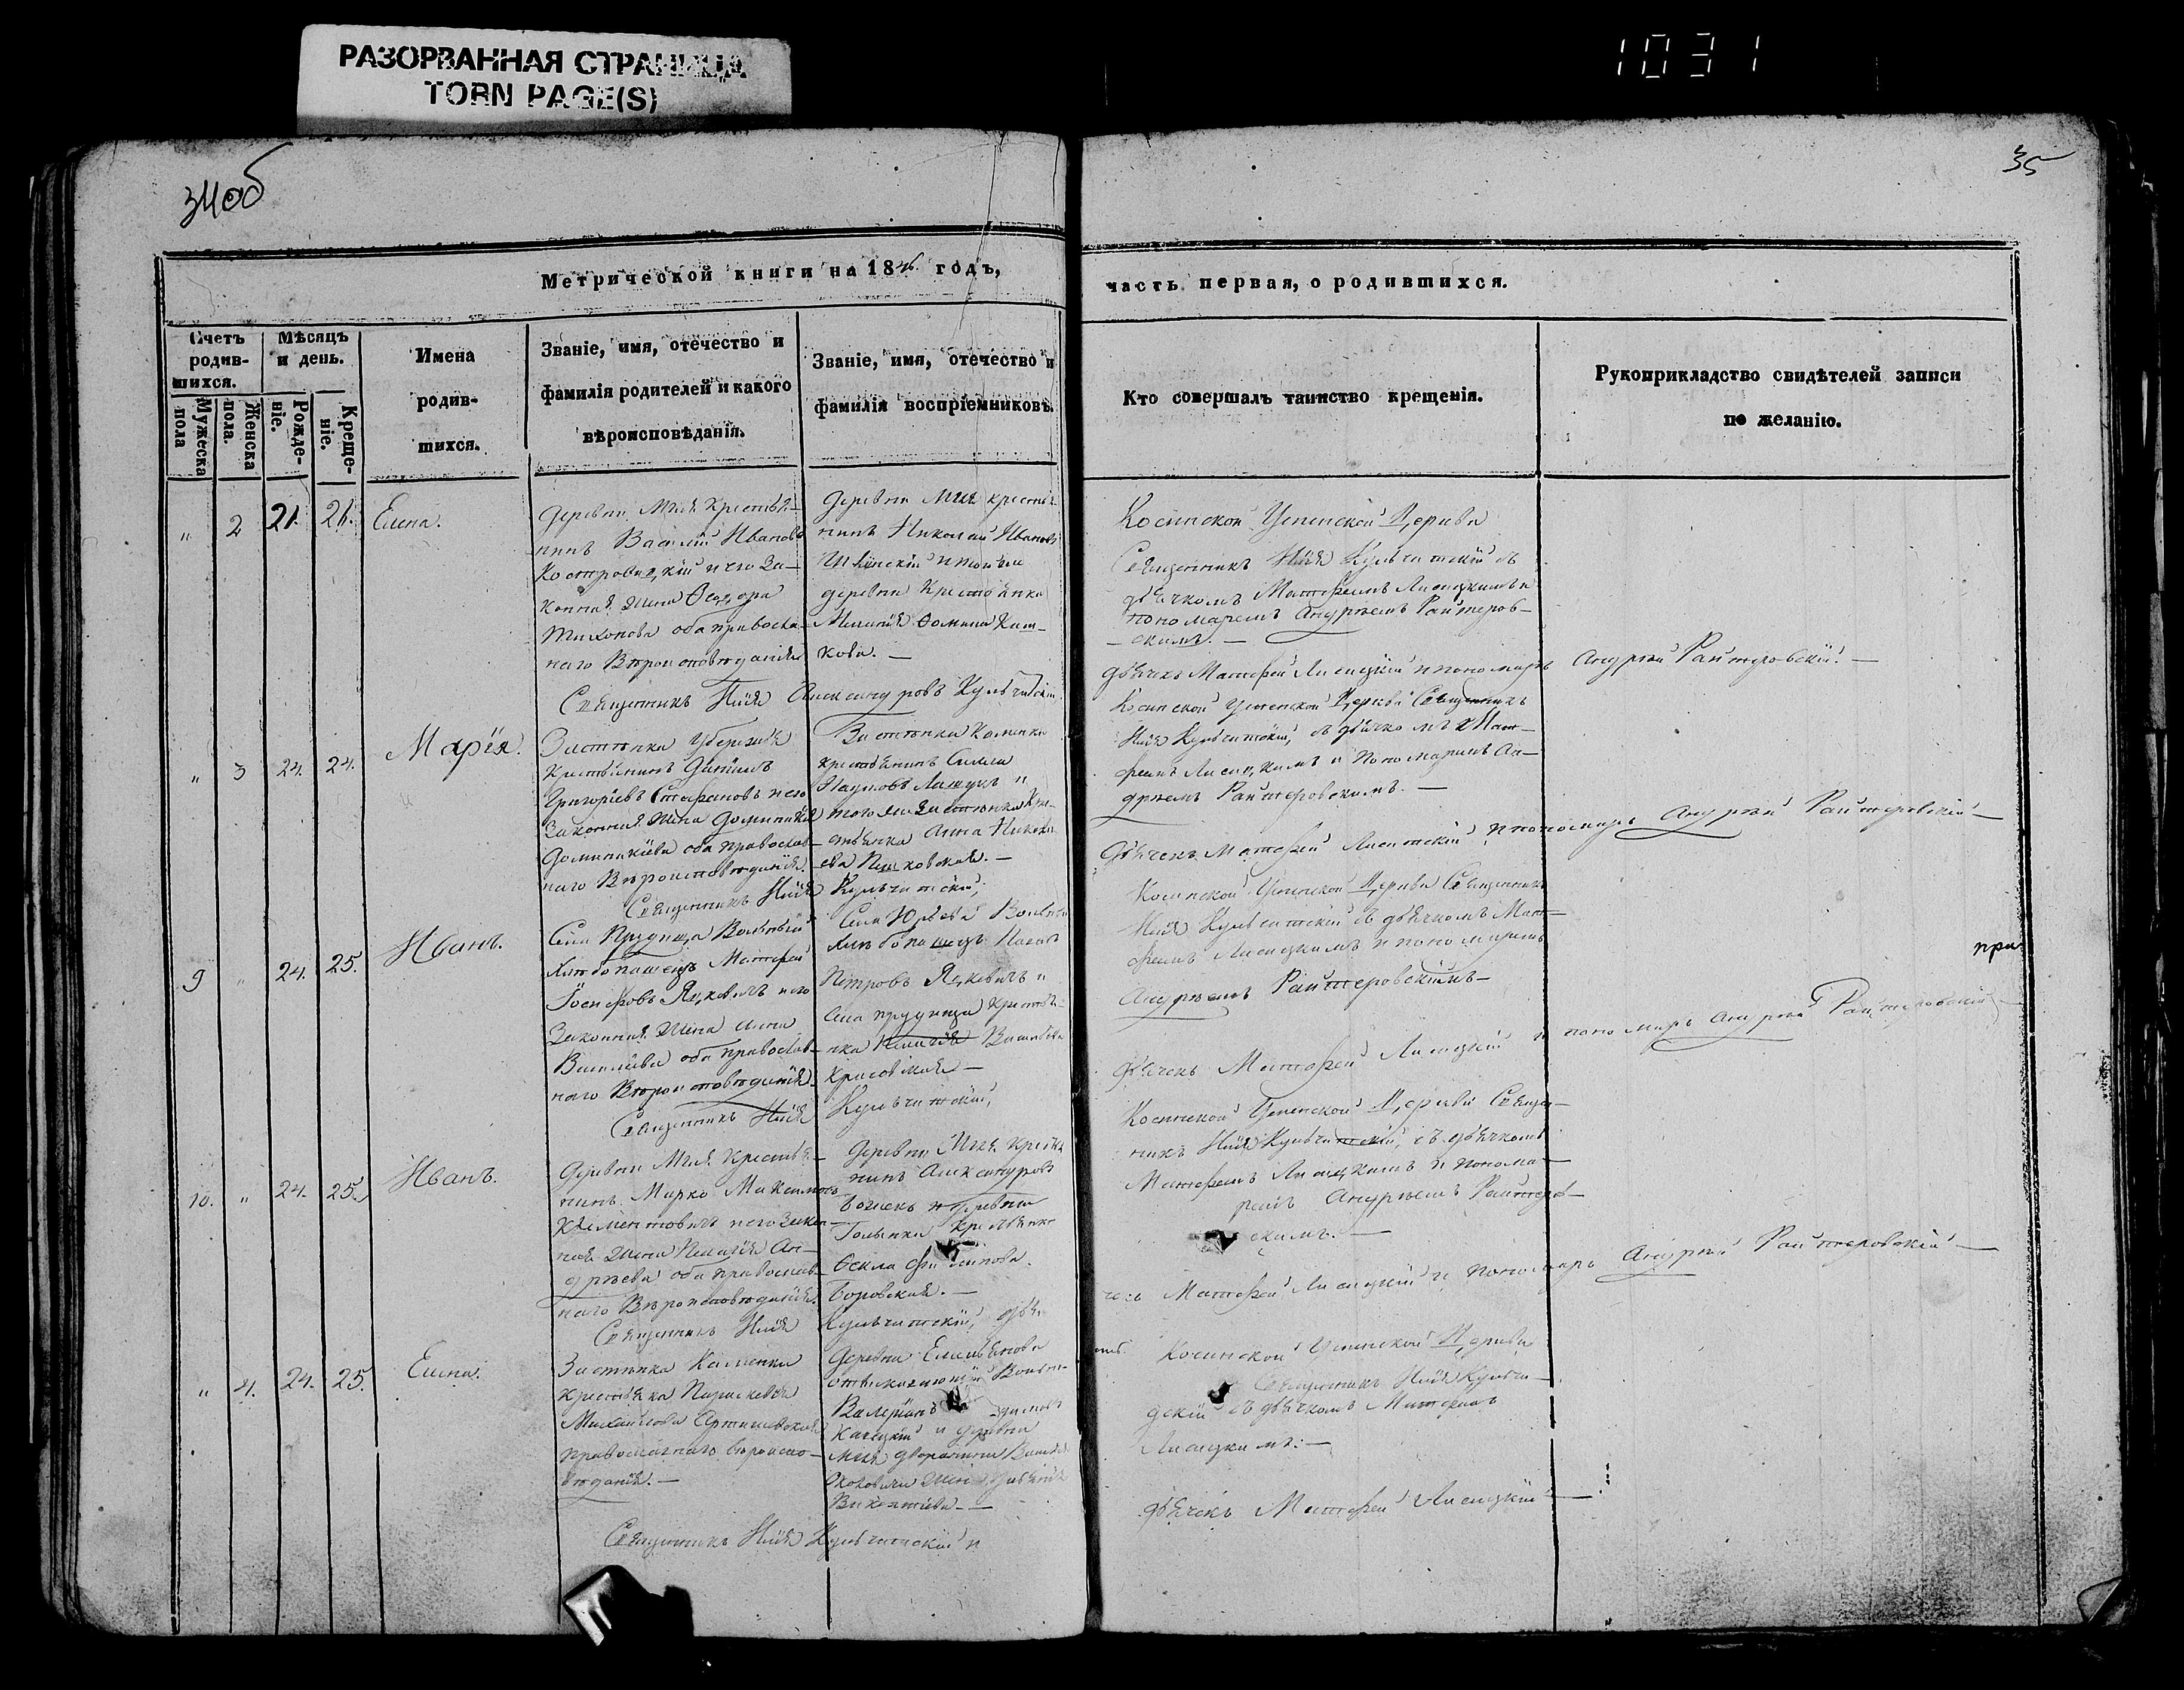 РАЗОРВАННАЯ СТРАНИЦА
TORN PAGE(S)
1031
34об
35
Метрической книги на 1846 годъ,
часть первая, о родившихся.
Счетъ родив-шихся.
Мужеска пола
Женска пола.
Мѣсяцъ и день.
Рожде-ніе.
Креще-ніе.
Имена
родив-
шихся.
Званіе, имя, отечество и
фамилія родителей и какого
вѣроисповѣданія.
Званіе, имя, отечество и
фамилія воспріемниковъ.
Кто совершалъ таинство крещенія.
Рукоприкладство свидѣтелей записи
по желанію.
" 2 21. 21. Елена.
Деревни Мля крестья-
нинъ Василій Ивановъ
и его За-
конная жена Ѳеодора
Тихонова оба православ-
наго Вѣроисповѣданія
Деревни Мля крестья-
нинъ Николай Ивановъ
и тойже
деревни крестьянка
Ѳомина
кова. —
Косинской Успенской Церкви
Священникъ Илія Кульчитскій съ
дьячкомъ Матфеемъ Лисицкимъ и
пономаремъ Андреемъ Райтеров-
скимъ. —
Священникъ Илія Александровъ Кульчитскій
дьячекъ Матфей Лисицкій и пономарь Андрей Райтеровскій. —
" 3 24. 24. Марія.
Застѣнка
крестьянинъ Даніилъ
Григорьевъ Стефановъ и его
Законная жена Доминикія
Доминикіева оба православ-
наго Вѣроисповѣданія.
Застѣнка Каменки
крестьянинъ
Наумовъ и
того же Застѣнка кре-
стьянка Анна
Косинской Успенской Церкви Священникъ
Илія Кульчитскій, съ дьячкомъ Мат-
феемъ Лисицкимъ и пономаремъ Ан-
дреемъ Райтеровскимъ. —
Священникъ Илія Кульчитскій,
дьячекъ Матфей Лиситскій и пономарь Андрей Райтеровскій —
9 " 24. 25. Иванъ.
Села Прудища Вольный
Хлѣбопашецъ Матфей
Іосифовъ Яцкевичъ и его
Законная жена Анна
Васильева оба православ-
наго Вѣроисповѣданія.
Села Юрьева Вольный
Хлѣбопашецъ
Петровъ Яцкевичъ и
села Прудища крестья-
нка Пелагія
Косинской Успенской Церкви Священникъ
Илія Кульчитскій съ дьячкомъ Мат-
феемъ Лисицкимъ и пономаремъ
Андреемъ Райтеровскимъ —
при
Священникъ Илія Кульчитскій,
дьячекъ Матфей Лисицкій и пономарь Андрей Райтеровскій —
10. " 24. 25. Иванъ.
Деревни Мля крестья-
нинъ Марко Максимовъ
Климентовичъ и его Закон-
ная жена Пелагія Ан-
дреева оба православ-
наго Вѣроисповѣданія.
Деревни Мля крестья
нинъ Александровъ
и деревни
Голынки крестьянка
Ѳекла
Боровская. —
Косинской Успенской Церкви Священ-
никъ Илія Кульчитскій, съ дьячкомъ
Матфеемъ Лисицкимъ и понома-
ремъ Андреемъ Райтеров-
скимъ. —
Священникъ Илія Кульчитскій, дья-
чекъ Матфей Лисицкій и пономарь Андрей Райтеровскій —
" 4. 24. 25. Елена.
Застѣнка Каменки
крестьянка Параскевія
Михайлова
православнаго вѣроиспо-
вѣданія. —
Деревни
Валеріанъ
и деревни
Мля дворянина
жена
Косинской Успенской Церкви
Священникъ Илія Кульчи-
цкій съ дьячкомъ Матфеемъ
Лисицкимъ: —
Священникъ Илія Кульчитскій и
дьячекъ Матфей Лисицкій —